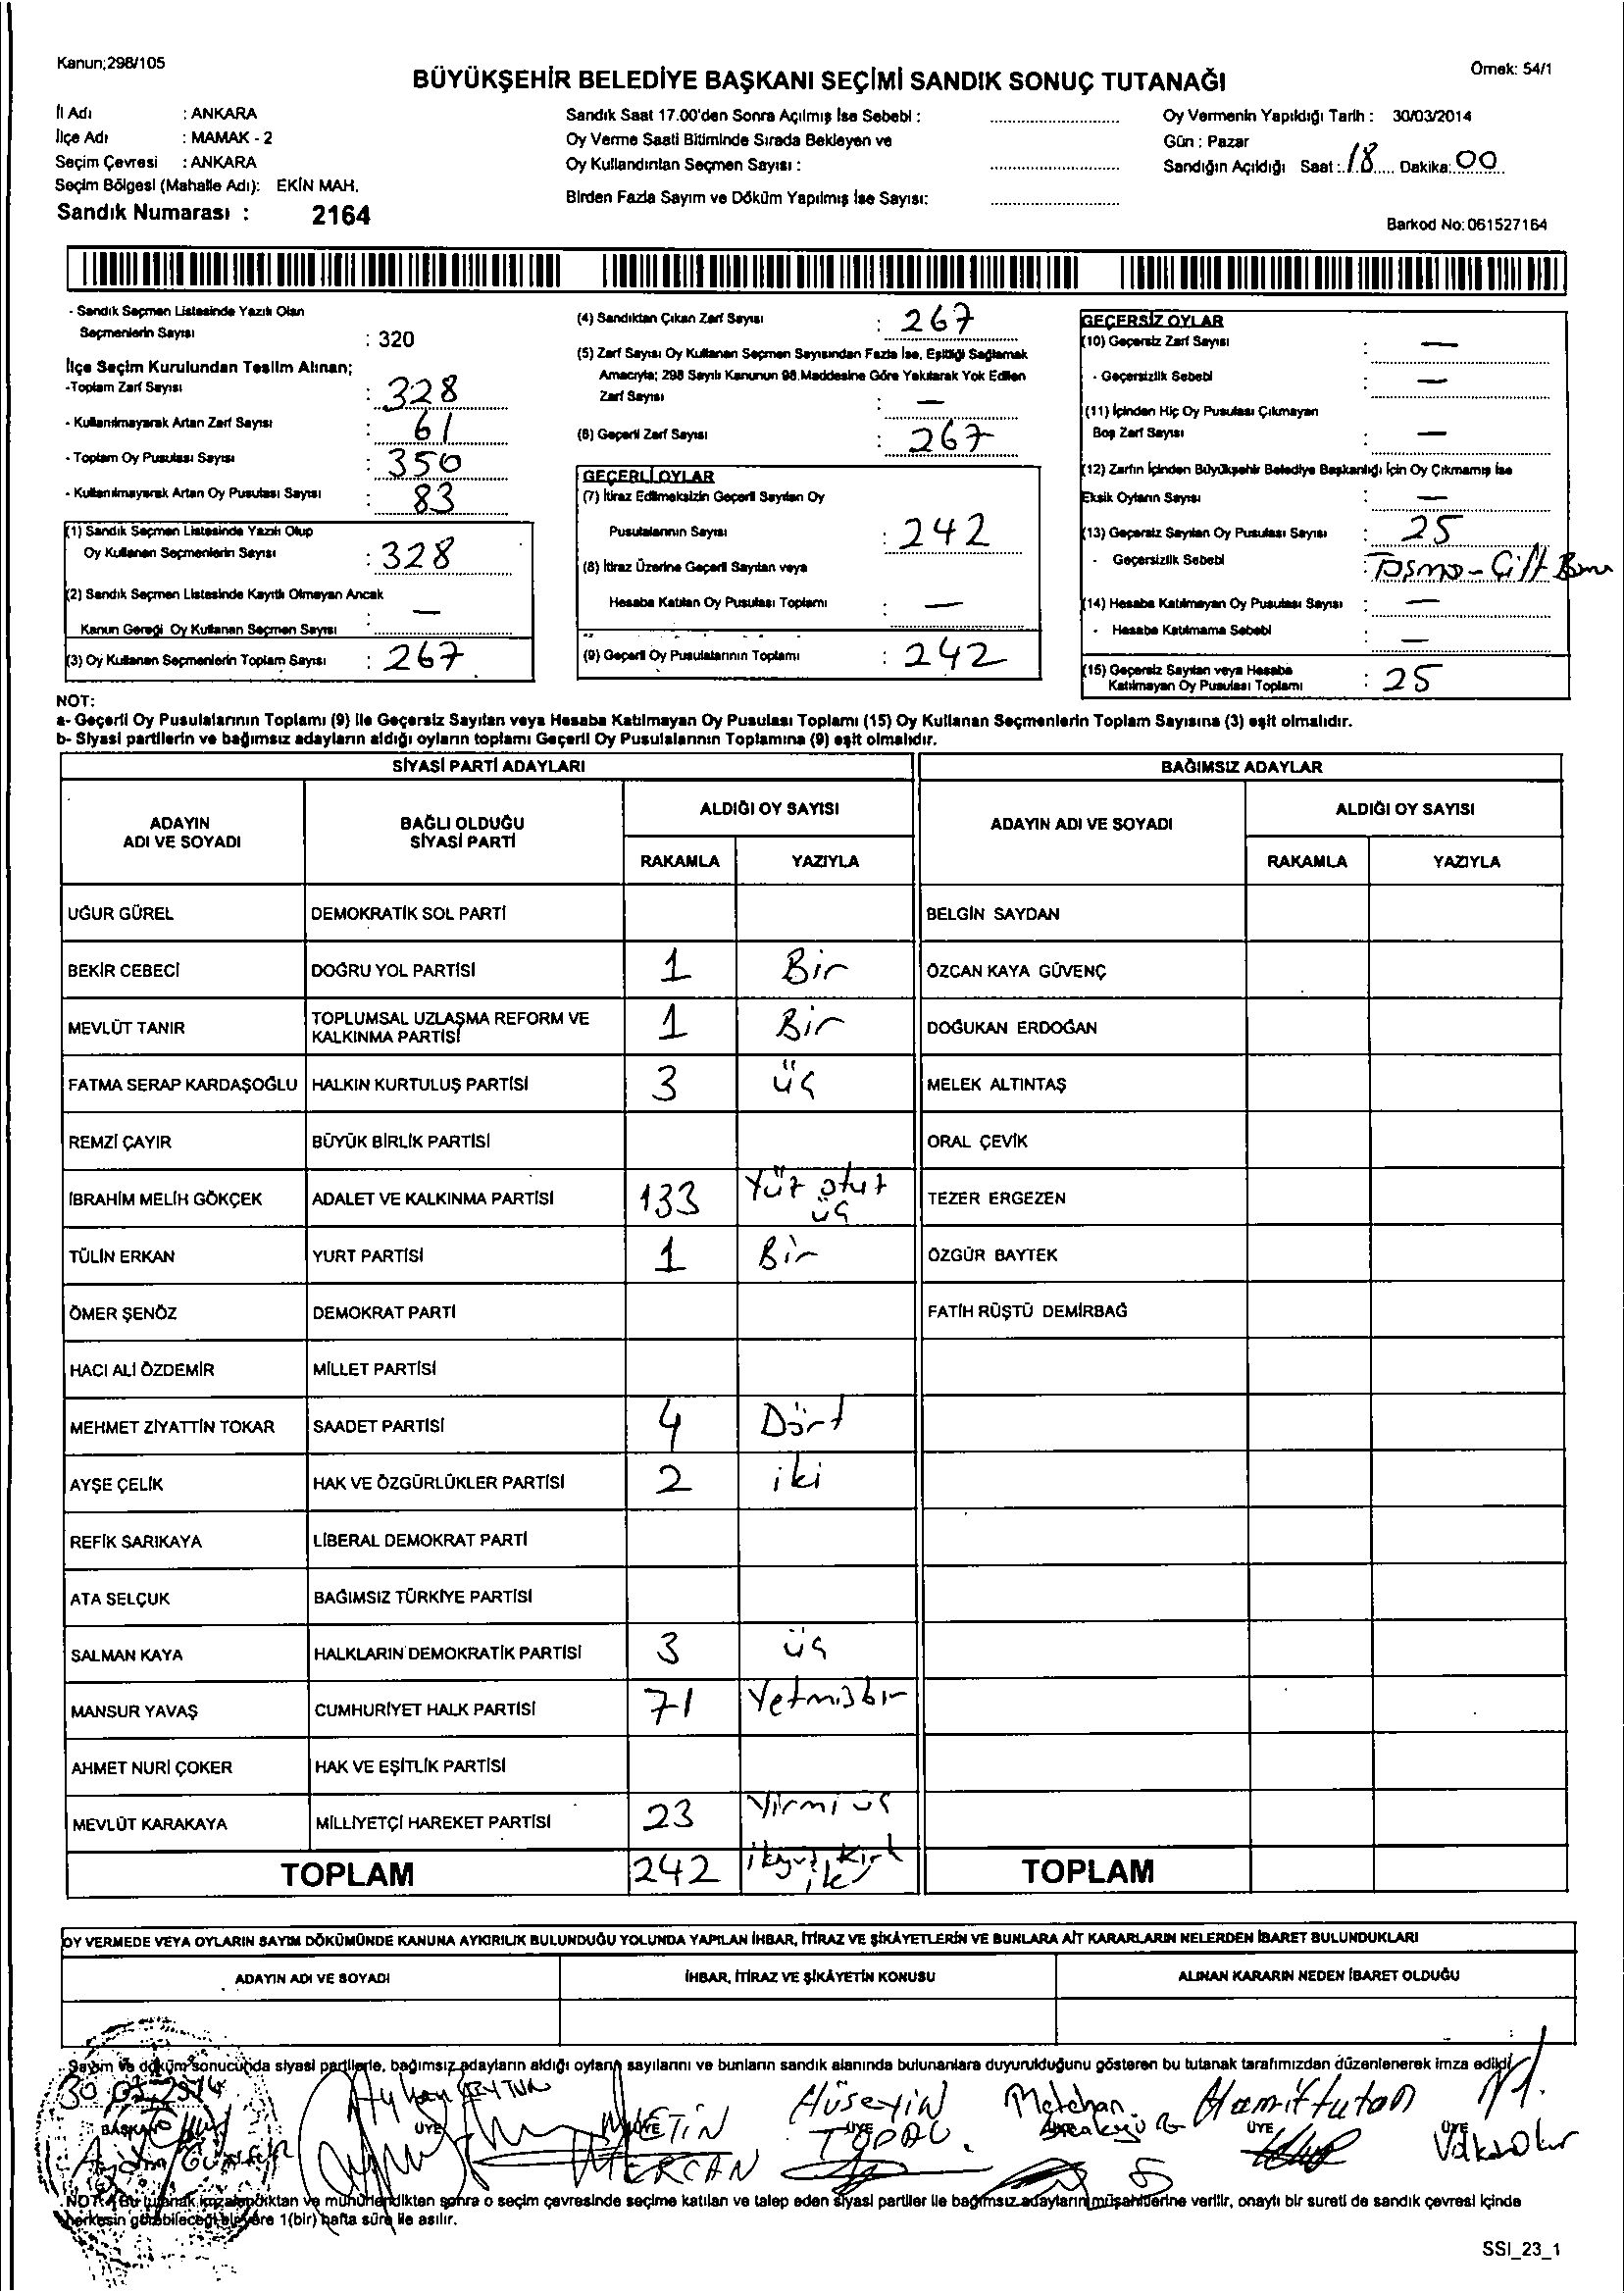 Kanun;298/105
Örnek: 54/1
BÜYÜKŞEHİR BELEDİYE BAŞKANI SEÇİMİ SANDIK SONUÇ TUTANAĞI
İl Adı : ANKARA
İlçe Adı : MAMAK - 2
Seçim Çevresi : ANKARA
Seçim Bölgesi (Mahalle Adı): EKİN MAH.
Sandık Numarası : 2164
Sandık Saat 17.00'den Sonra Açılmış İse Sebebi :
Oy Verme Saati Bitiminde Sırada Bekleyen ve
Oy Kullandırılan Seçmen Sayısı :
Birden Fazla Sayım ve Döküm Yapılmış İse Sayısı:
Oy Vermenin Yapıldığı Tarih : 30/03/2014
Gün : Pazar
Sandığın Açıldığı Saat : 18 Dakika: 00
Barkod No: 061527164
- Sandık Seçmen Listesinde Yazılı Olan
Seçmenlerin Sayısı : 320
İlçe Seçim Kurulundan Teslim Alınan;
-Toplam Zarf Sayısı : 328
- Kullanılmayarak Artan Zarf Sayısı : 61
- Toplam Oy Pusulası Sayısı : 350
- Kullanılmayarak Artan Oy Pusulası Sayısı : 83
(1) Sandık Seçmen Listesinde Yazılı Olup
Oy Kullanan Seçmenlerin Sayısı : 328
(2) Sandık Seçmen Listesinde Kayıtlı Olmayan Ancak
Kanun Gereği Oy Kullanan Seçmen Sayısı : —
(3) Oy Kullanan Seçmenlerin Toplam Sayısı : 267
(4) Sandıktan Çıkan Zarf Sayısı : 267
(5) Zarf Sayısı Oy Kullanan Seçmen Sayısından Fazla İse, Eşitliği Sağlamak
Amacıyla; 298 Sayılı Kanunun 98.Maddesine Göre Yakılarak Yok Edilen
Zarf Sayısı : —
(6) Geçerli Zarf Sayısı : 267
GEÇERLİ OYLAR
(7) İtiraz Edilmeksizin Geçerli Sayılan Oy
Pusulalarının Sayısı : 242
(8) İtiraz Üzerine Geçerli Sayılan veya
Hesaba Katılan Oy Pusulası Toplamı : —
(9) Geçerli Oy Pusulalarının Toplamı : 242
GEÇERSİZ OYLAR
(10) Geçersiz Zarf Sayısı : —
- Geçersizlik Sebebi : —
(11) İçinden Hiç Oy Pusulası Çıkmayan
Boş Zarf Sayısı : —
(12) Zarfın İçinden Büyükşehir Belediye Başkanlığı İçin Oy Çıkmamış İse
Eksik Oyların Sayısı : —
(13) Geçersiz Sayılan Oy Pusulası Sayısı : 25
- Geçersizlik Sebebi : Taşma - Çift
(14) Hesaba Katılmayan Oy Pusulası Sayısı : —
- Hesaba Katılmama Sebebi : —
(15) Geçersiz Sayılan veya Hesaba
Katılmayan Oy Pusulası Toplamı : 25
NOT:
a- Geçerli Oy Pusulalarının Toplamı (9) ile Geçersiz Sayılan veya Hesaba Katılmayan Oy Pusulası Toplamı (15) Oy Kullanan Seçmenlerin Toplam Sayısına (3) eşit olmalıdır.
b- Siyasi partilerin ve bağımsız adayların aldığı oyların toplamı Geçerli Oy Pusulalarının Toplamına (9) eşit olmalıdır.
SİYASİ PARTİ ADAYLARI BAĞIMSIZ ADAYLAR
ADAYIN ADI VE SOYADI BAĞLI OLDUĞU SİYASİ PARTİ ALDIĞI OY SAYISI ADAYIN ADI VE SOYADI ALDIĞI OY SAYISI
RAKAMLA YAZIYLA RAKAMLA YAZIYLA
UĞUR GÜREL DEMOKRATİK SOL PARTİ BELGİN SAYDAN
BEKİR CEBECİ DOĞRU YOL PARTİSİ 1 Bir ÖZCAN KAYA GÜVENÇ
MEVLÜT TANIR TOPLUMSAL UZLAŞMA REFORM VE KALKINMA PARTİSİ 1 Bir DOĞUKAN ERDOĞAN
FATMA SERAP KARDAŞOĞLU HALKIN KURTULUŞ PARTİSİ 3 üç MELEK ALTINTAŞ
REMZİ ÇAYIR BÜYÜK BİRLİK PARTİSİ ORAL ÇEVİK
İBRAHİM MELİH GÖKÇEK ADALET VE KALKINMA PARTİSİ 133 Yüz otuz üç TEZER ERGEZEN
TÜLİN ERKAN YURT PARTİSİ 1 Bir ÖZGÜR BAYTEK
ÖMER ŞENÖZ DEMOKRAT PARTİ FATİH RÜŞTÜ DEMİRBAĞ
HACI ALİ ÖZDEMİR MİLLET PARTİSİ
MEHMET ZİYATTİN TOKAR SAADET PARTİSİ 4 Dört
AYŞE ÇELİK HAK VE ÖZGÜRLÜKLER PARTİSİ 2 iki
REFİK SARIKAYA LİBERAL DEMOKRAT PARTİ
ATA SELÇUK BAĞIMSIZ TÜRKİYE PARTİSİ
SALMAN KAYA HALKLARIN DEMOKRATİK PARTİSİ 3 üç
MANSUR YAVAŞ CUMHURİYET HALK PARTİSİ 71 Yetmişbir
AHMET NURİ ÇOKER HAK VE EŞİTLİK PARTİSİ
MEVLÜT KARAKAYA MİLLİYETÇİ HAREKET PARTİSİ 23 Yirmi üç
TOPLAM 242 ikiyüz kırk iki TOPLAM
OY VERMEDE VEYA OYLARIN SAYIM DÖKÜMÜNDE KANUNA AYKIRILIK BULUNDUĞU YOLUNDA YAPILAN İHBAR, İTİRAZ VE ŞİKÂYETLERİN VE BUNLARA AİT KARARLARIN NELERDEN İBARET BULUNDUKLARI
ADAYIN ADI VE SOYADI İHBAR, İTİRAZ VE ŞİKÂYETİN KONUSU ALINAN KARARIN NEDEN İBARET OLDUĞU
Sayım ve döküm sonucunda siyasi partilerle, bağımsız adayların aldığı oyların sayılarını ve bunların sandık alanında bulunanlara duyurulduğunu gösteren bu tutanak tarafımızdan düzenlenerek imza edildi
30.03.2014
BAŞKAN ÜYE ÜYE ÜYE ÜYE ÜYE
Ayhan
METİN MERCAN
Hüseyin TOPAÇ
Metehan
Hamit tutan
NOT: Bu tutanak imzalandıktan ve mühürlendikten sonra o seçim çevresinde seçime katılan ve talep eden siyasi partiler ile bağımsız adayların müşahitlerine verilir, onaylı bir sureti de sandık çevresi içinde
herkesin görebileceği bir yere 1(bir) hafta süre ile asılır.
SSI_23_1